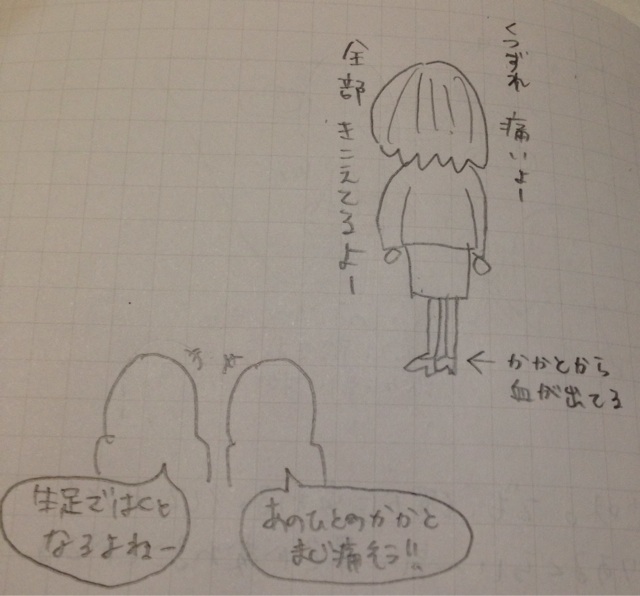 くつずれ 痛いよー
全部 きこえてるよー
かかとから
血が出てる
あのひとのかかと
まじ痛そう!!
生足ではくと
なるよねー